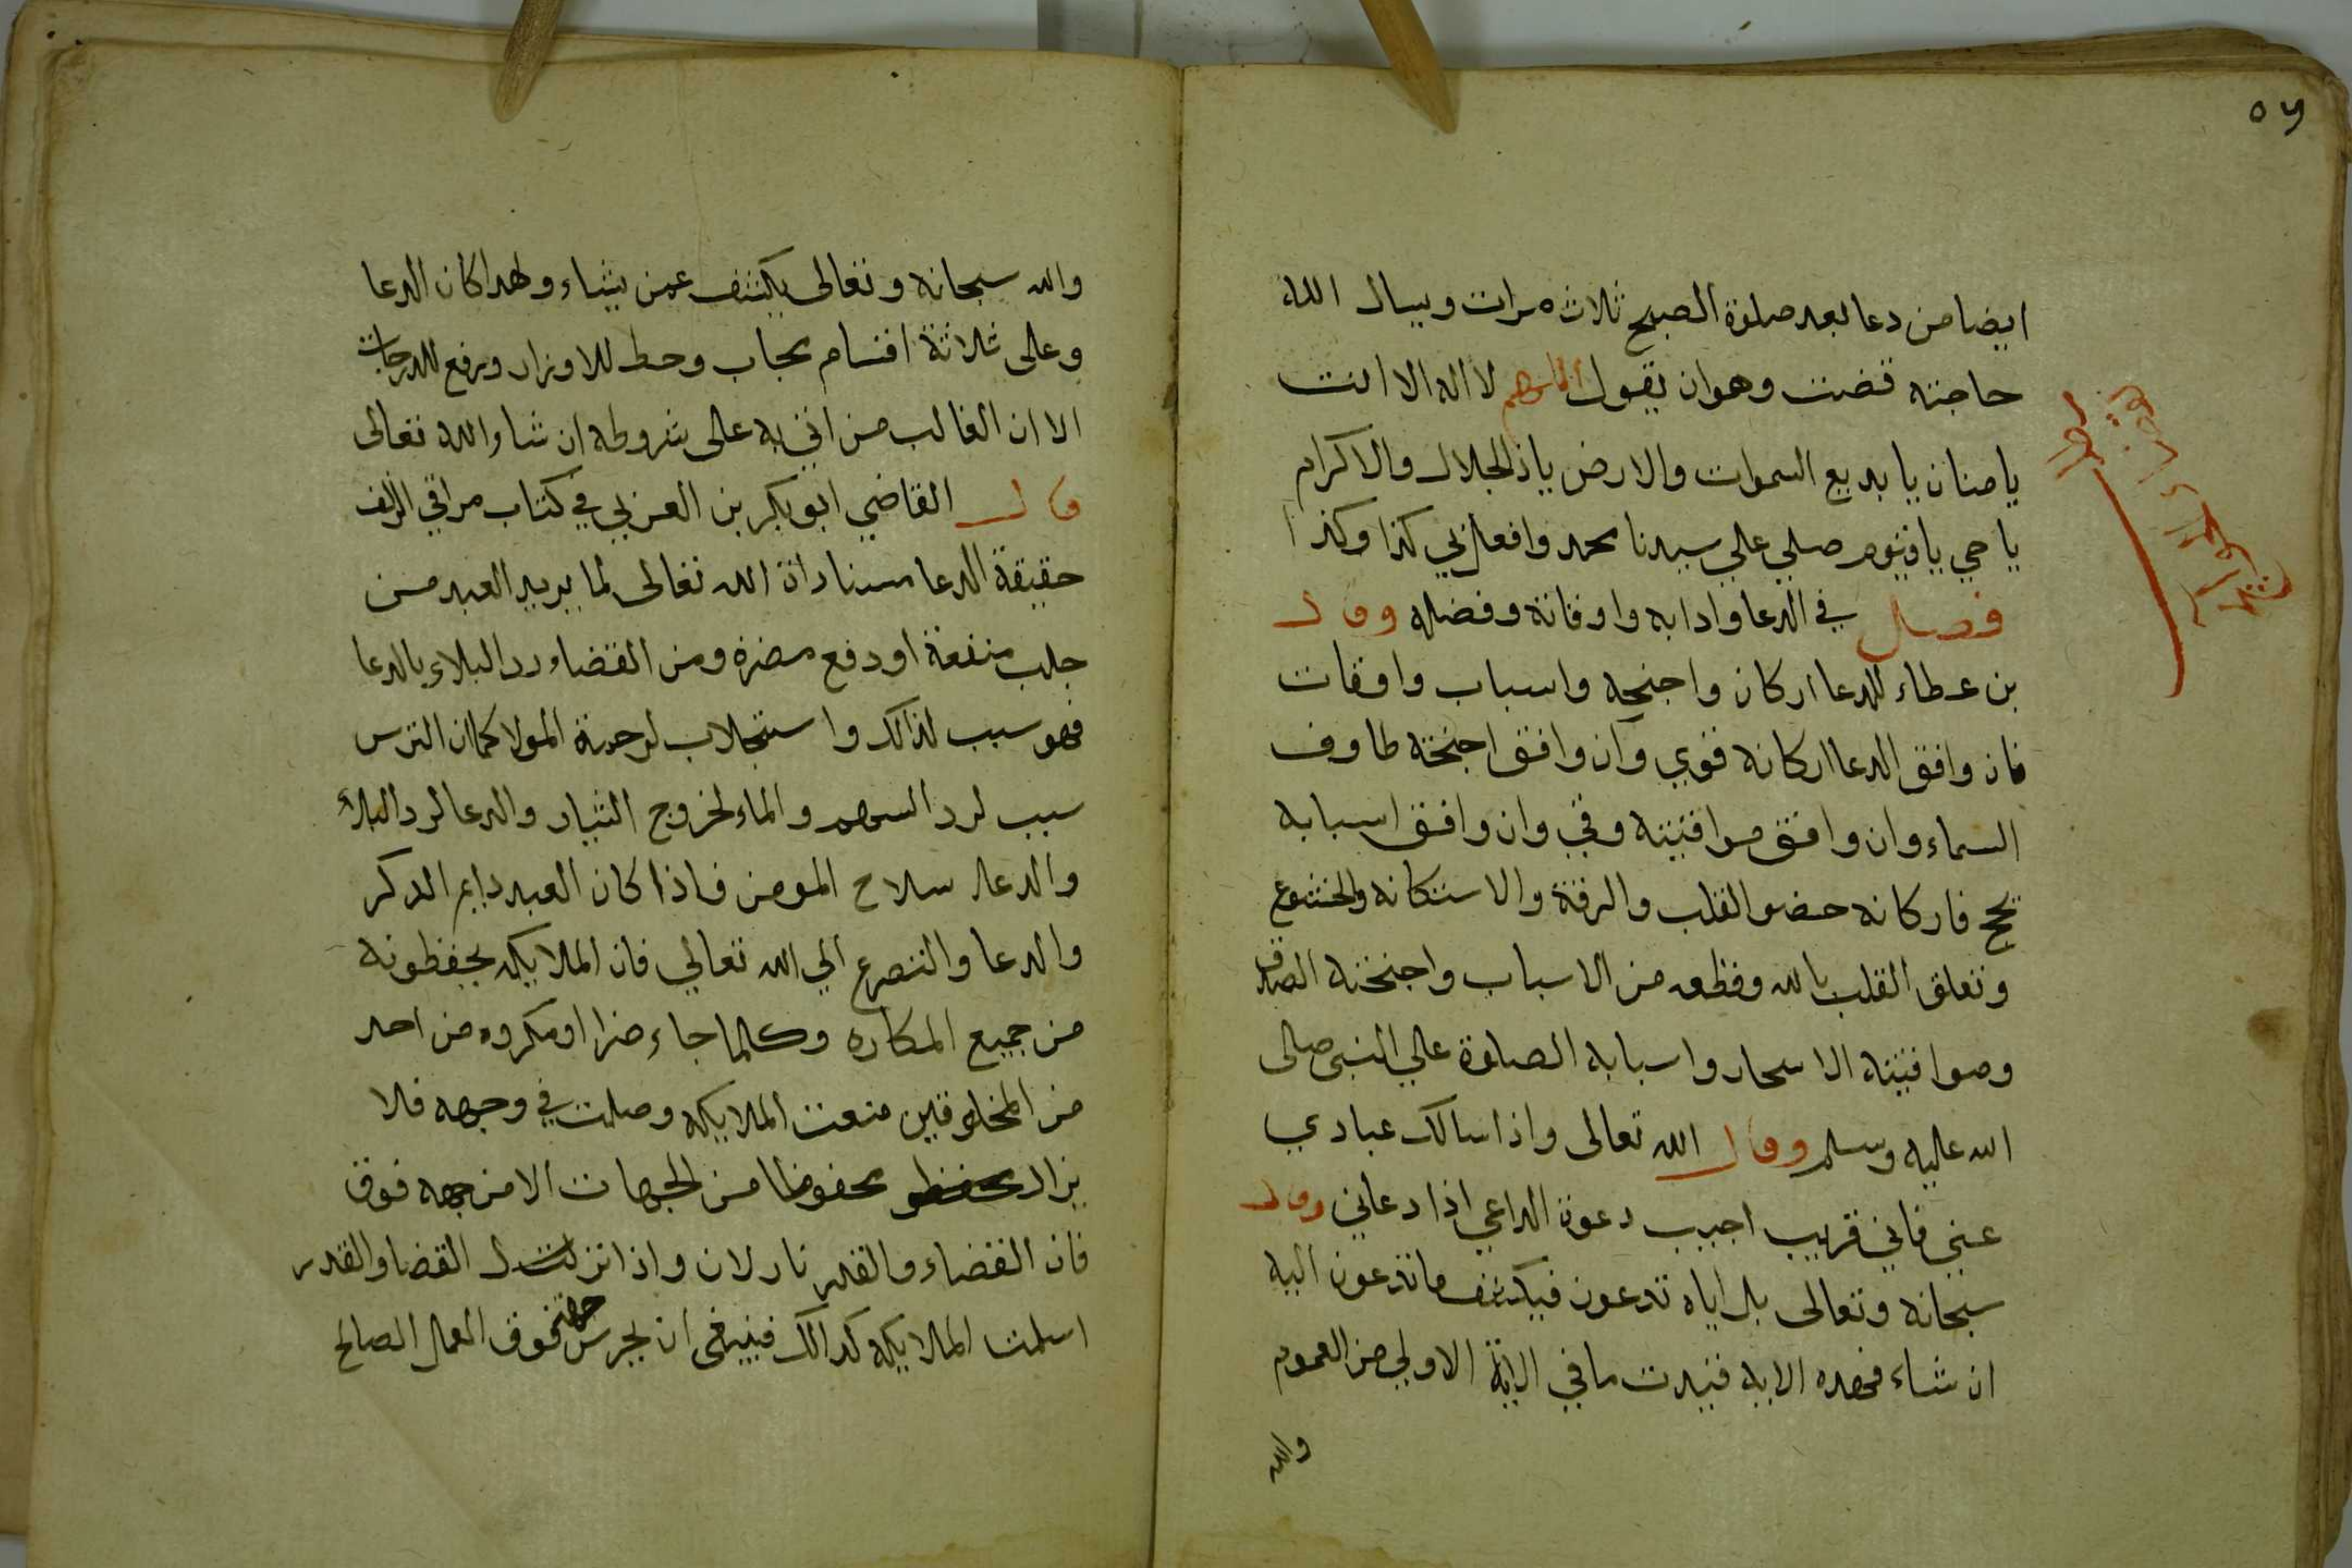 ٥٩
ايضا من دعا بعد صلوة الصبح ثلاث مرات ويسال الله
حاجته قضت وهوان يقول اللهم لا اله الا انت
يا منان يا بديع السموات والارض ياذالجلال والاكرام
يا حي يا قيوم صلي علي سيدنا محمد وافعل بي كذا وكذا
فصل في الدعا وادابه واوقاته وفضله وقال
بن عطاء للدعا اركان واجنحه واسباب واوقات
فان وافق الدعا اركانه قوي وان وافق اجنحته طار في
السماء وان وافق مواقيته وفي وان وافق اسبابه
نجح فاركانه حضو القلب والرقة والاستكانه والخشوع
وتعلق القلب بالله وقطعه من الاسباب واجنحته الصدق
ومواقيته الاسحار واسبابه الصلوة علي النبي صلى
الله عليه وسلم وقال الله تعالى واذا سالك عبادي
عني فاني قريب اجيب دعوة الداعي اذا دعاني وقال
سبحانه وتعالى بل اياه تدعون فيكشف ما تدعون اليه
ان شاء فهده الايه قيدت ما في الاية الاولي من العموم
والله
والله سبحانه وتعالى يكشف عمن يشاء ولهدا كان الدعا
وعلى ثلاثة اقسام يجاب وحط للاوزار ورفع للدرجات
الا ان الغالب من اتي به على شروطه ان شاء الله تعالى
قال القاضي ابو بكر بن العربي في كتاب مراقي الزلف
حقيقة الدعا مناداة الله تعالى لما يريد العبد من
جلب منفعة او دفع مضرة ومن القضاء رد البلاء بالدعا
فهو سبب لذالك واستجلاب لرحمة المولا كما ان الترس
سبب لرد السهم والماء لخروج النبات والدعا لرد البلاء
والدعا سلاح المومن فاذا كان العبد دايم الدكر
والدعا والتضرع الي الله تعالي فان الملايكه يحفظونه
من جميع المكاره وكلما جاء ضرا او مكروه من احد
من المخلوقين منعت الملايكه وصلت في وجهه فلا
يزال محفوظا من الجهات الا من جهه فوق
فان القضاء والقدر نازلان واذا نزل القضا والقدر
اسلمت الملايكه كدالك فينبغى ان يحرس جهة فوق العمال الصالح